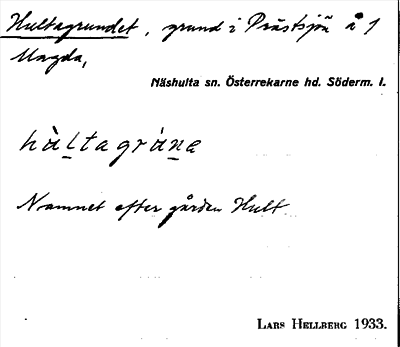 Hultagrundet, grund i Prästsjön å 1
Magda,
Näshulta sn. Österrekarne hd. Söderm. l.
hùltagrùnɛ
Namnet efter gården Hult.
LARS HELLBERG 1933.